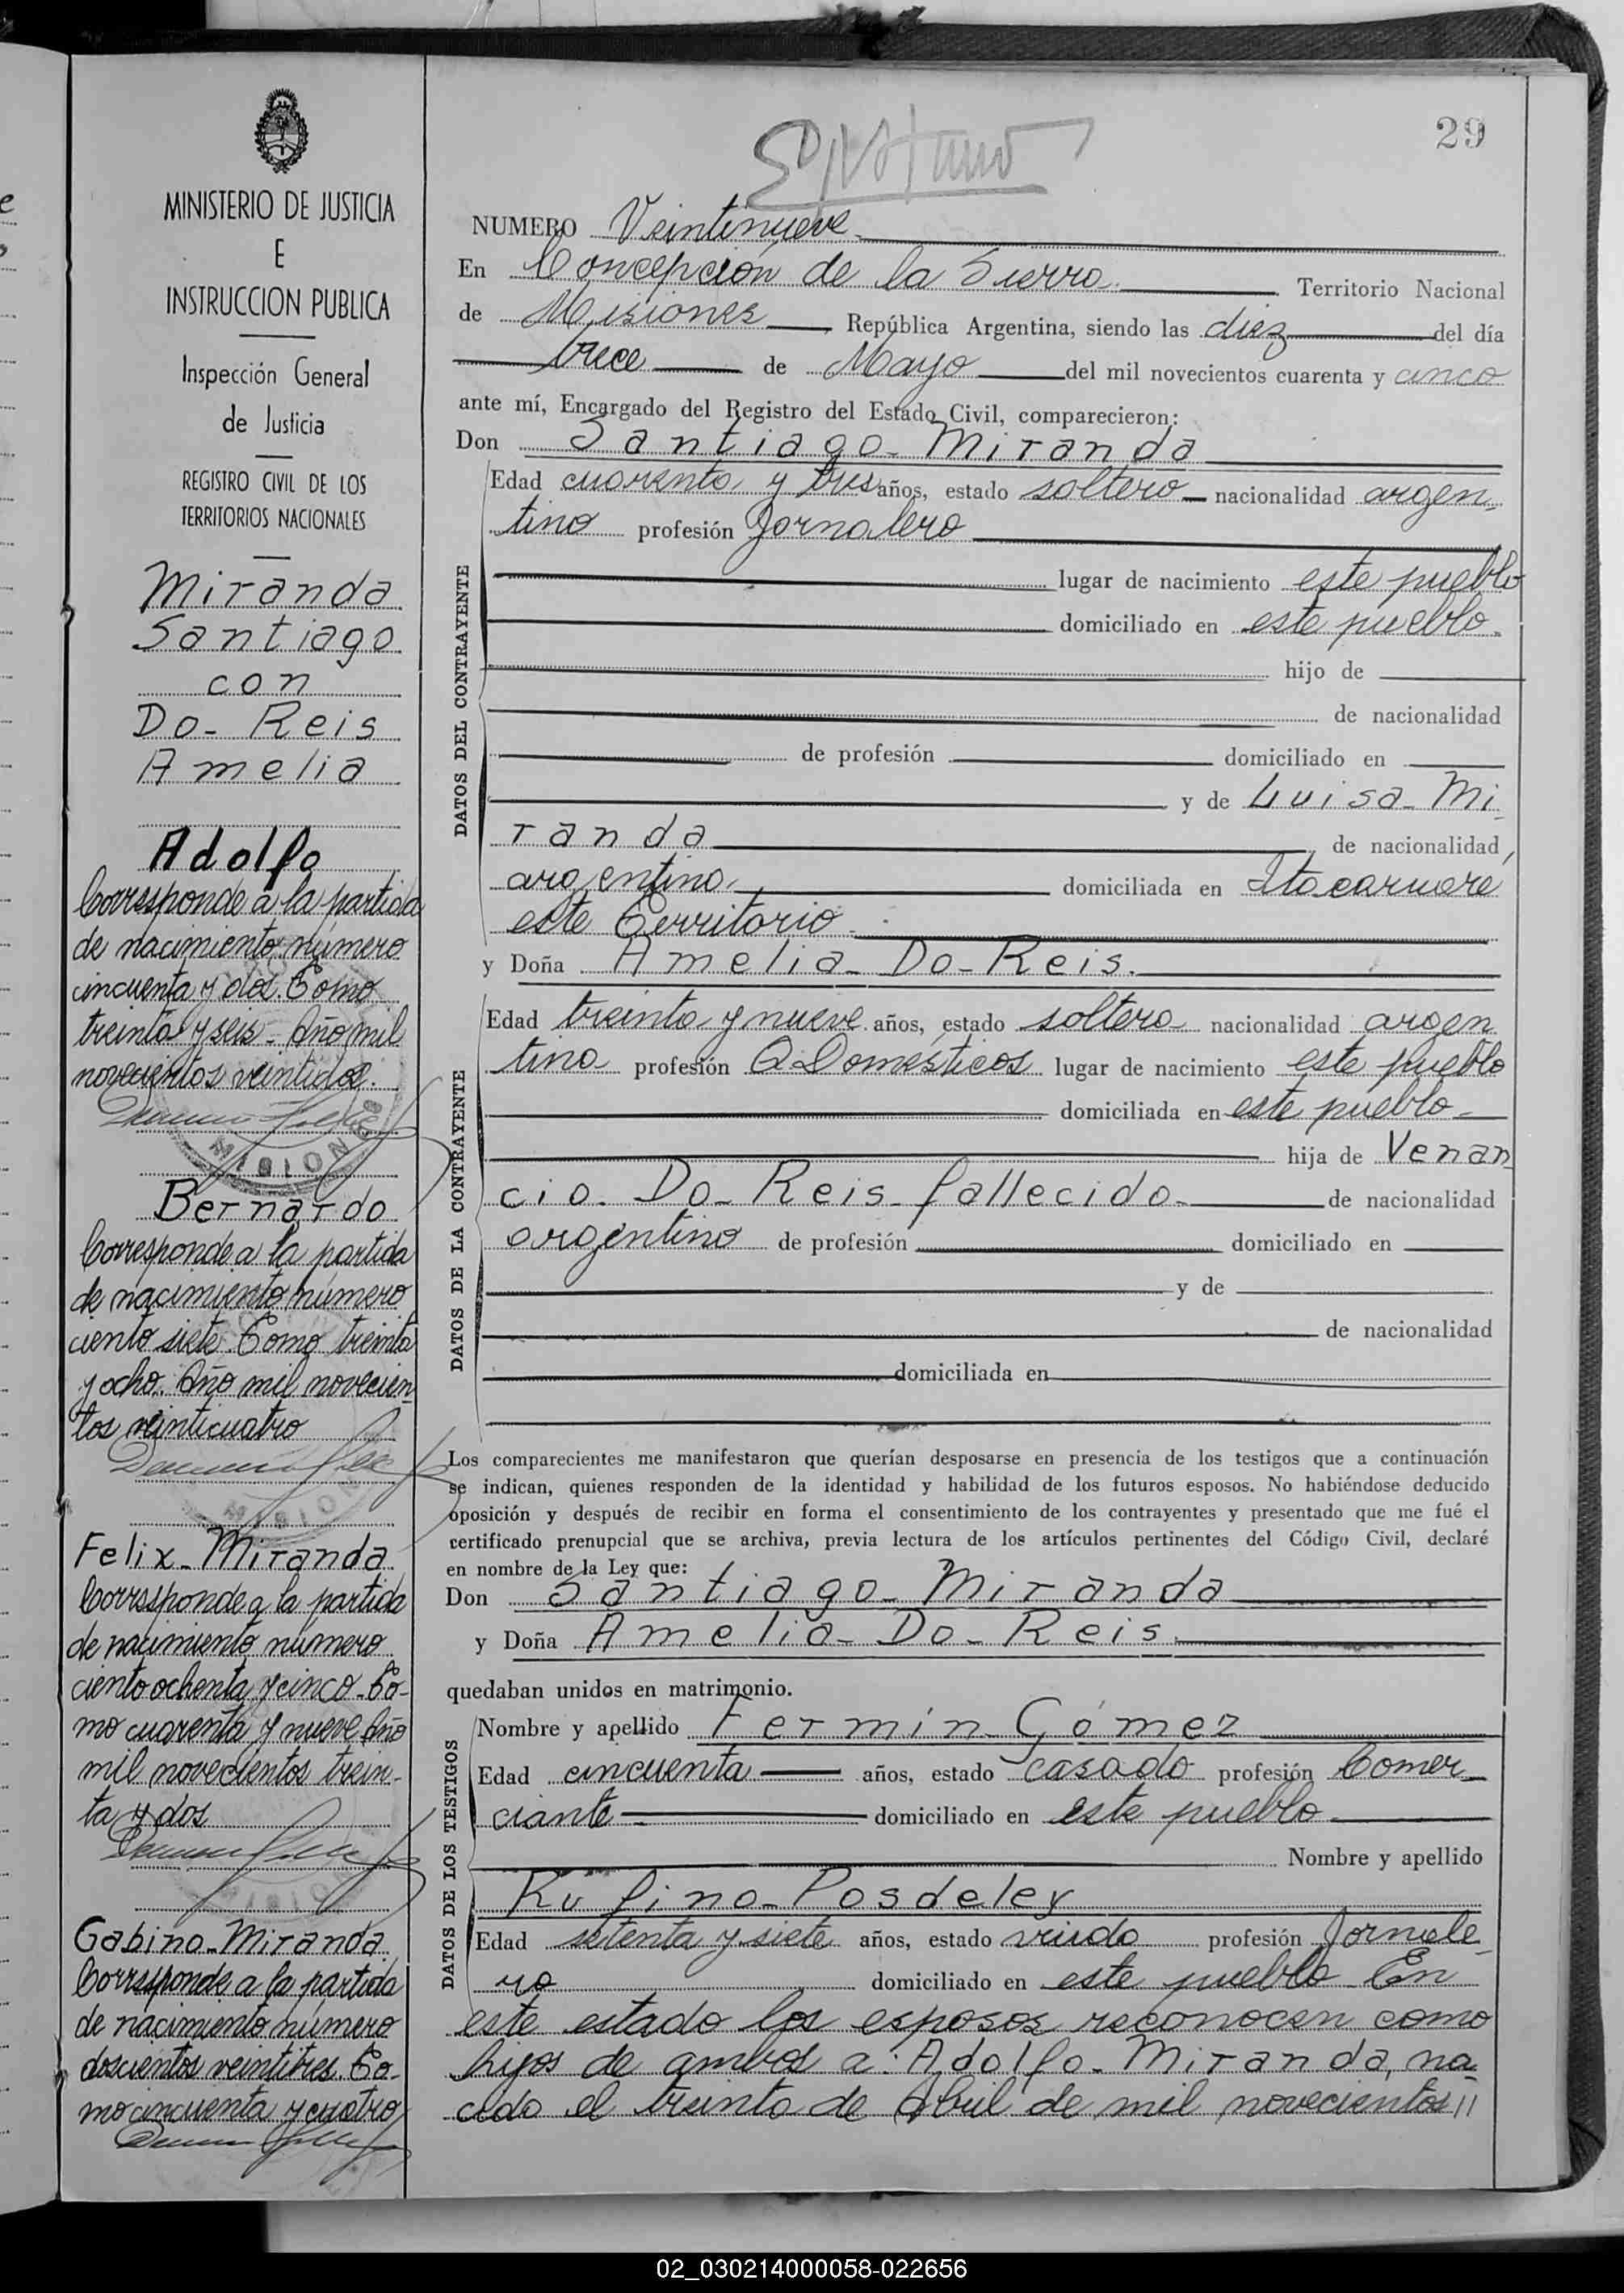 MINISTERIO DE JUSTICIA
E
INSTRUCCION PUBLICA
Inspección General
de Justicia
REGISTRO CIVIL DE LOS
TERRITORIOS NACIONALES
Miranda
Santiago
con
Do- Reis
Amelia
Adolfo
Corresponde a la partida
de nacimiento número
cincuenta y dos. Tomo
treinta y seis - Año mil
novecientos veintidos.
MISIONES
Bernardo
Corresponde a la partida
de nacimiento número
ciento siete. Tomo treinta
y ocho. Año mil novecien
tos veinticuatro
Felix- Miranda
Corresponde a la partida
de nacimiento número
ciento ochenta y cinco - To-
mo cuarenta y nueve Año
mil novecientos trein-
ta y dos
Gabino- Miranda
Corresponde a la partida
de nacimiento número
doscientos veintitres. To-
mo cincuenta y cuatro
29
NUMERO Veintinueve
En Concepción de la Sierra Territorio Nacional
de Misiones República Argentina, siendo las diez del día
trece de Mayo del mil novecientos cuarenta y cinco
ante mí, Encargado del Registro del Estado Civil, comparecieron:
Don Santiago- Miranda
DATOS DEL CONTRAYENTE
Edad cuarenta y tres años, estado soltero nacionalidad argen-
tino profesión Jornalero
lugar de nacimiento este pueblo
domiciliado en este pueblo-
hijo de
de nacionalidad
de profesión domiciliado en
y de Luisa- Mi-
randa de nacionalidad
argentina domiciliada en Itacaruare
este Territorio
y Doña Amelia- Do- Reis.
DATOS DE LA CONTRAYENTE
Edad treinta y nueve años, estado soltera nacionalidad argen
tina profesión Q.Domésticos lugar de nacimiento este pueblo
domiciliada en este pueblo-
hija de Venan
cio- Do- Reis- fallecido- de nacionalidad
argentino de profesión domiciliado en
y de
de nacionalidad
domiciliada en
Los comparecientes me manifestaron que querían desposarse en presencia de los testigos que a continuación
se indican, quienes responden de la identidad y habilidad de los futuros esposos. No habiéndose deducido
oposición y después de recibir en forma el consentimiento de los contrayentes y presentado que me fué el
certificado prenupcial que se archiva, previa lectura de los artículos pertinentes del Código Civil, declaré
en nombre de la Ley que:
Don Santiago- Miranda
y Doña Amelia- Do- Reis.
quedaban unidos en matrimonio.
DATOS DE LOS TESTIGOS
Nombre y apellido Fermín- Gómez
Edad cincuenta años, estado casado profesión Comer-
ciante domiciliado en este pueblo
Nombre y apellido
Rufino- Posdeley
Edad setenta y siete años, estado viudo profesión Jornale-
ro domiciliado en este pueblo En
este estado los esposos reconocen como
hijos de ambos a: Adolfo- Miranda, na-
cido el treinta de Abril de mil novecientos //
02_030214000058-022656